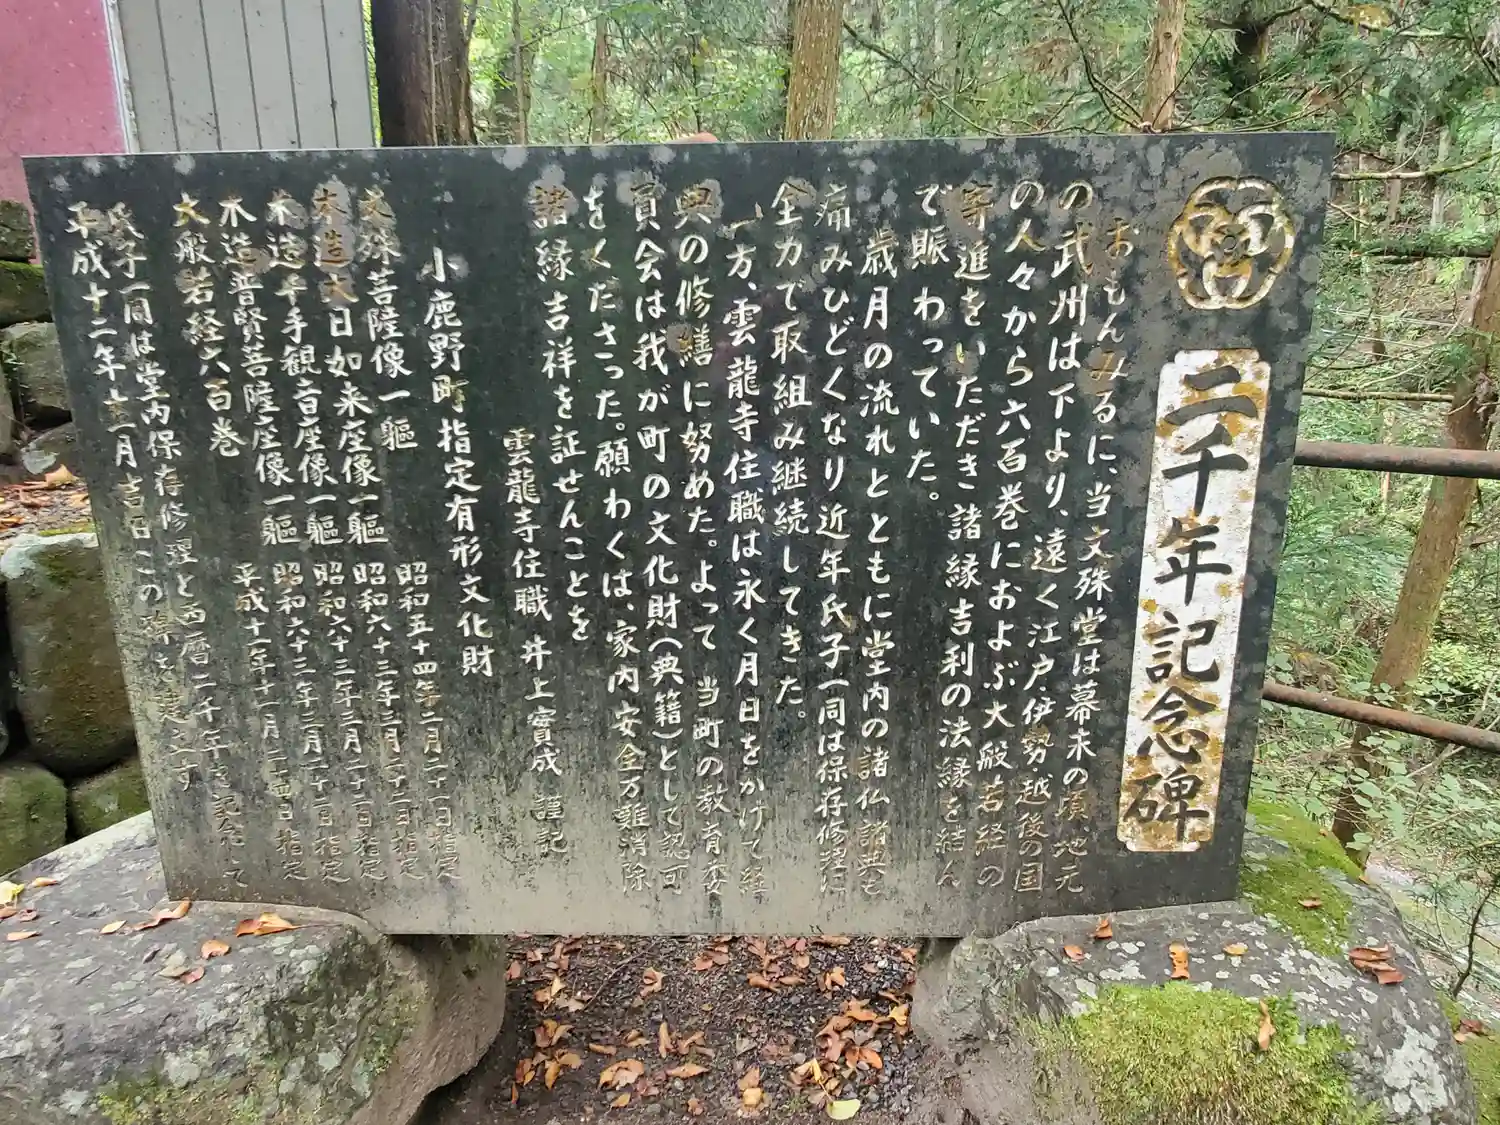 二千年記念碑
おもんみるに、当文殊堂は幕末の頃、地元
の武州は下より、遠く江戸伊勢越後の国
の人々から六百巻におよぶ大般若経の
寄進をいただき諸縁吉利の法縁を結ん
で賑わっていた。
歳月の流れとともに堂内の諸仏諸典も
痛みひどくなり近年氏子一同は保存修理に
全力で取組み継続してきた。
一方、雲龍寺住職は永く月日をかけて経
典の修繕に努めた。よって当町の教育委
員会は我が町の文化財(典籍)として認可
をくださった。願わくは、家内安全万難消除
諸縁吉祥を証せんことを
雲龍寺住職 井上實成 謹記
小鹿野町指定有形文化財
文殊菩薩像一軀 昭和五十四年二月二十一日指定
木造大日如来座像一軀 昭和六十三年三月二十二日指定
木造千手観音座像一軀 昭和六十三年三月二十二日指定
木造普賢菩薩座像一軀 昭和六十三年三月二十二日指定
大般若経六百巻 平成十一年十一月二十四日指定
氏子一同は堂内保存修理と西暦二千年を記念して
平成十二年十一月吉日この碑を建立す